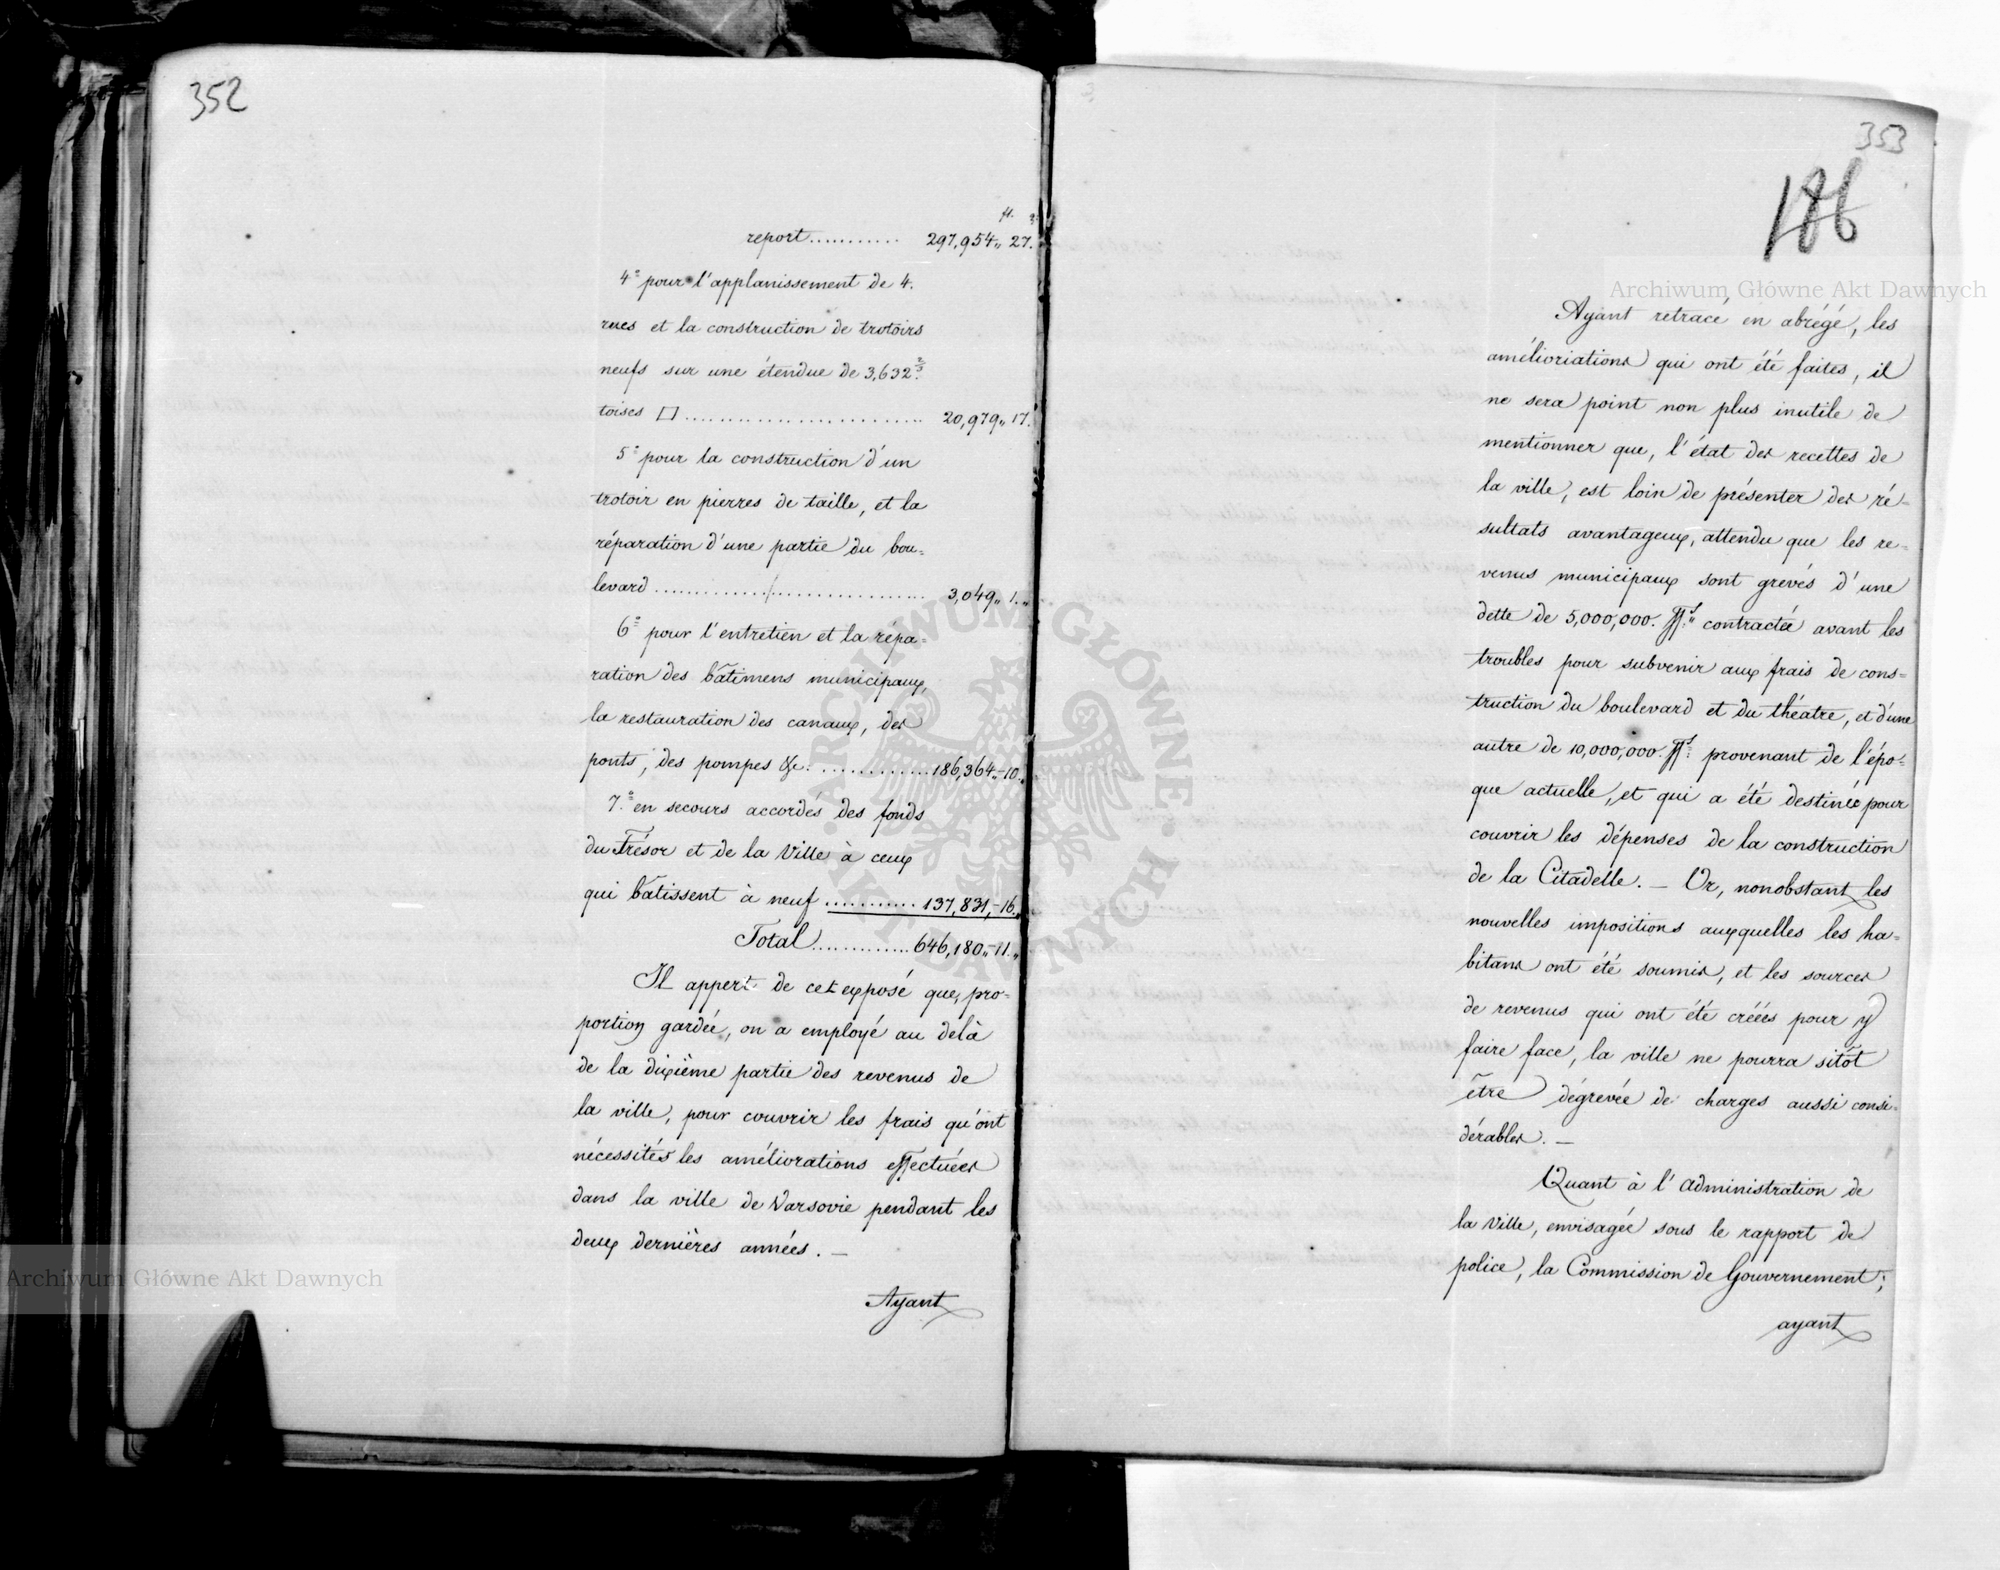 352
fl. g.
report........... 297,954,, 27.
4º pour l'applanissement de 4.
rues et la construction de trotoirs
neufs sur une étendue de 3,632 2/3.
toises □ ........................ 20,979,, 17.
5º pour la construction d'un
trotoir en pierres de taille, et la
réparation d'une partie du bou=
levard ............................ 3,049,, 1.,,
6º pour l'entretien et la répa=
ration des bâtimens municipaux,
la restauration des canaux, des
ponts, des pompes &c. ............ 186,364,,-10.,,
7.º en secours accordés des fonds
du Trésor et de la Ville à ceux
qui bâtissent à neuf ........... 137,831,-16.,,
Total ............ 646,180,,-11.,,
Il appert de cet exposé que, pro=
portion gardée, on a employé au delà
de la dixième partie des revenus de
la ville, pour couvrir les frais qu'ont
nécessités les améliorations effectuées
dans la ville de Varsovie pendant les
deux dernières années. —
Ayant
353
186
Ayant retracé en abrégé, les
amélioriations qui ont été faites, il
ne sera point non plus inutile de
mentionner que, l'état des recettes de
la ville, est loin de présenter des ré=
sultats avantageux, attendu que les re=
venus municipaux sont grévés d'une
dette de 5,000,000. fls contractée avant les
troubles pour subvenir aux frais de cons=
truction du boulevard et du théatre, et d'une
autre de 10,000,000. fls provenant de l'épo=
que actuelle, et qui a été destinée pour
couvrir les dépenses de la construction
de la Citadelle. — Or, nonobstant les
nouvelles impositions auxquelles les ha=
bitans ont été soumis, et les sources
de revenus qui ont été créées pour y
faire face, la ville ne pourra sitôt
être dégrévée de charges aussi consi=
dérables. —
Quant à l'administration de
la Ville, envisagée sous le rapport de
police, la Commission de Gouvernement;
ayant
Archiwum Główne Akt Dawnych
Archiwum Główne Akt Dawnych
ARCHIWUM GŁÓWNE AKT DAWNYCH